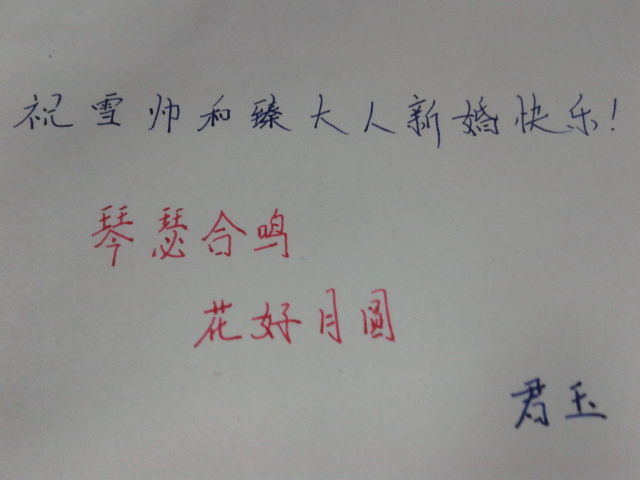 祝雪帅和臻大人新婚快乐!
琴瑟合鸣
花好月圆
君玉